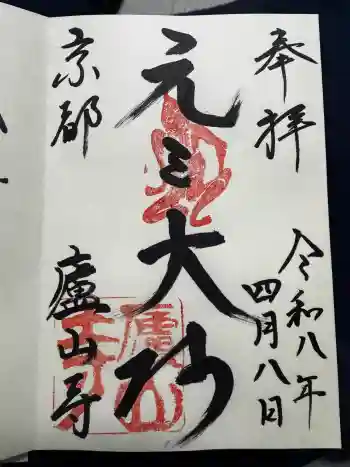 奉拝
令和八年
四月八日
元三大師
京都
廬山寺
廬山寺